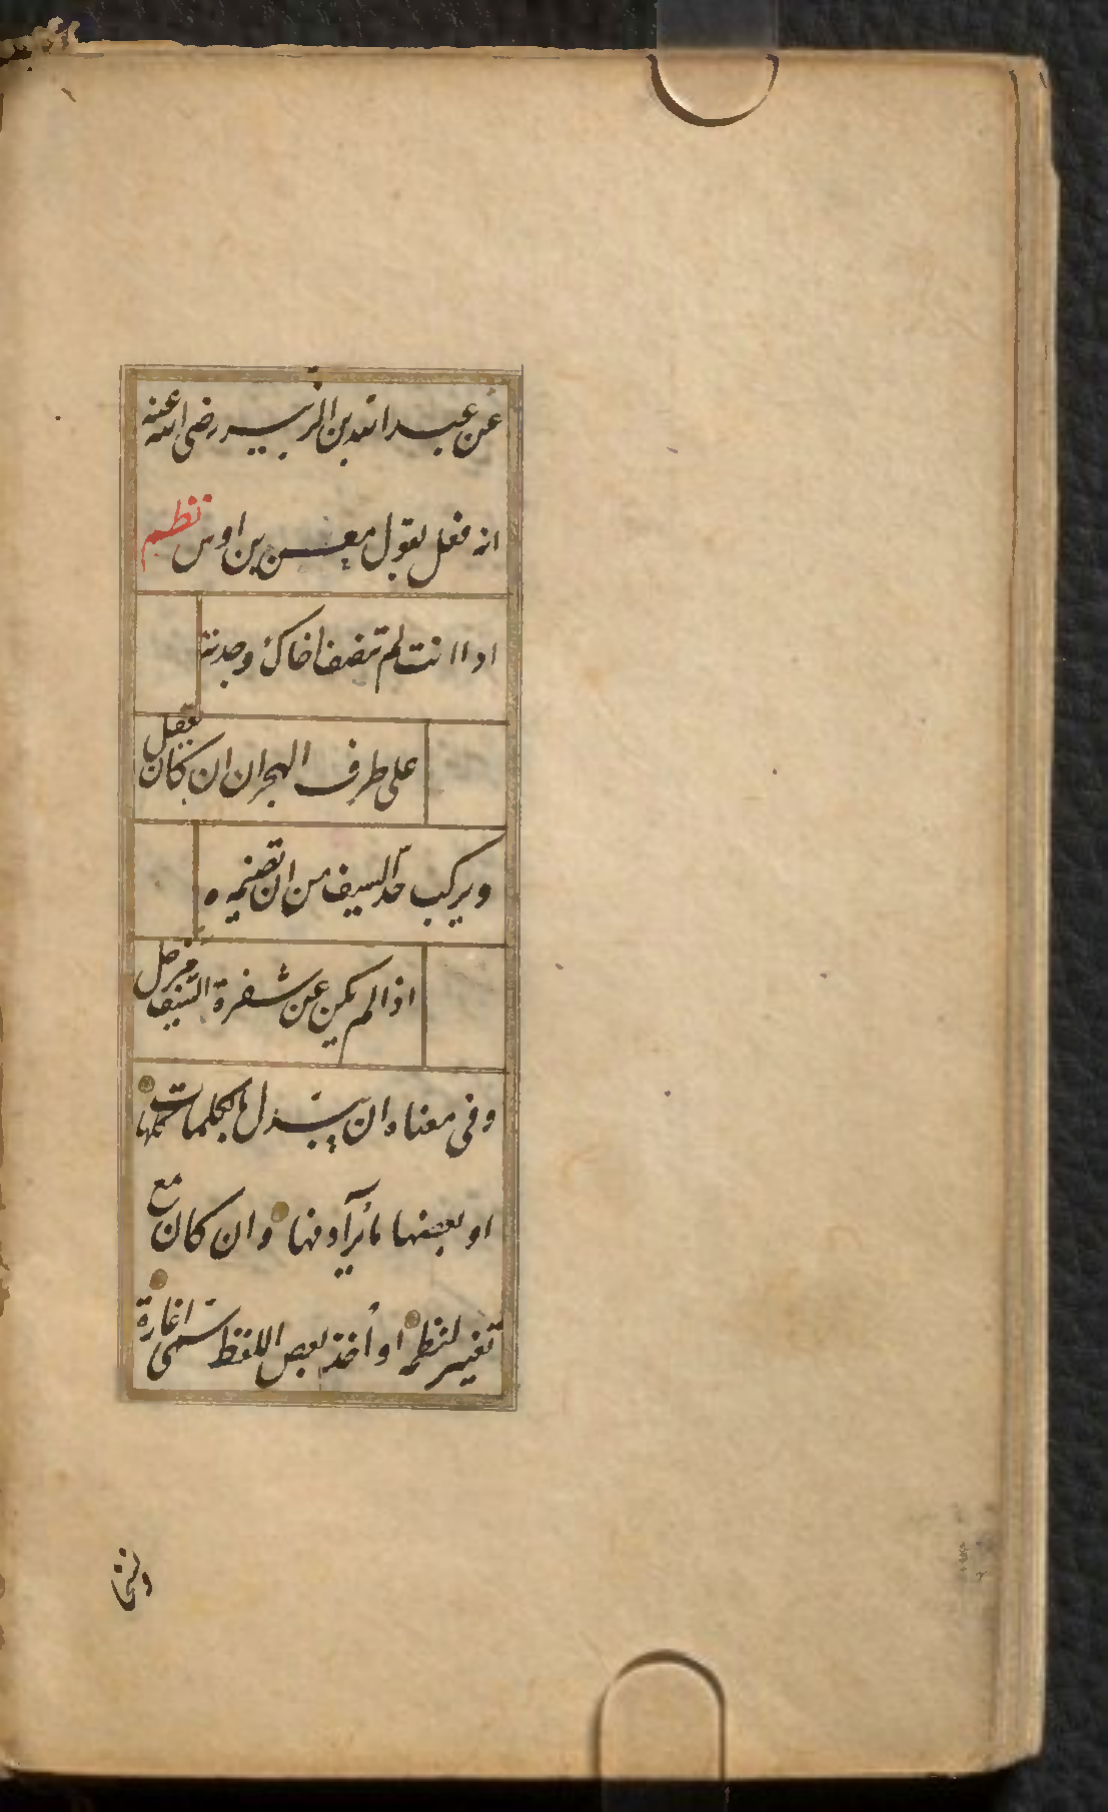 عن عبد الله بن الزبير رضی الله عنه
انه فعل بقول معن بن اوس نظم
اذا انت لم تنصف اخاک وجدته
علی طرف الهجران ان کان یعقل
ویرکب حدّ السیف من ان تضیمه
اذا لم یکن عن شفرة السیف مزحل
وفی معناه ان یبدّل بالکلمات کلها
او بعضها مایُرادفها وان کان مع
تغییر لنظمه او أخذ بعض اللفظ سمّی اغارة